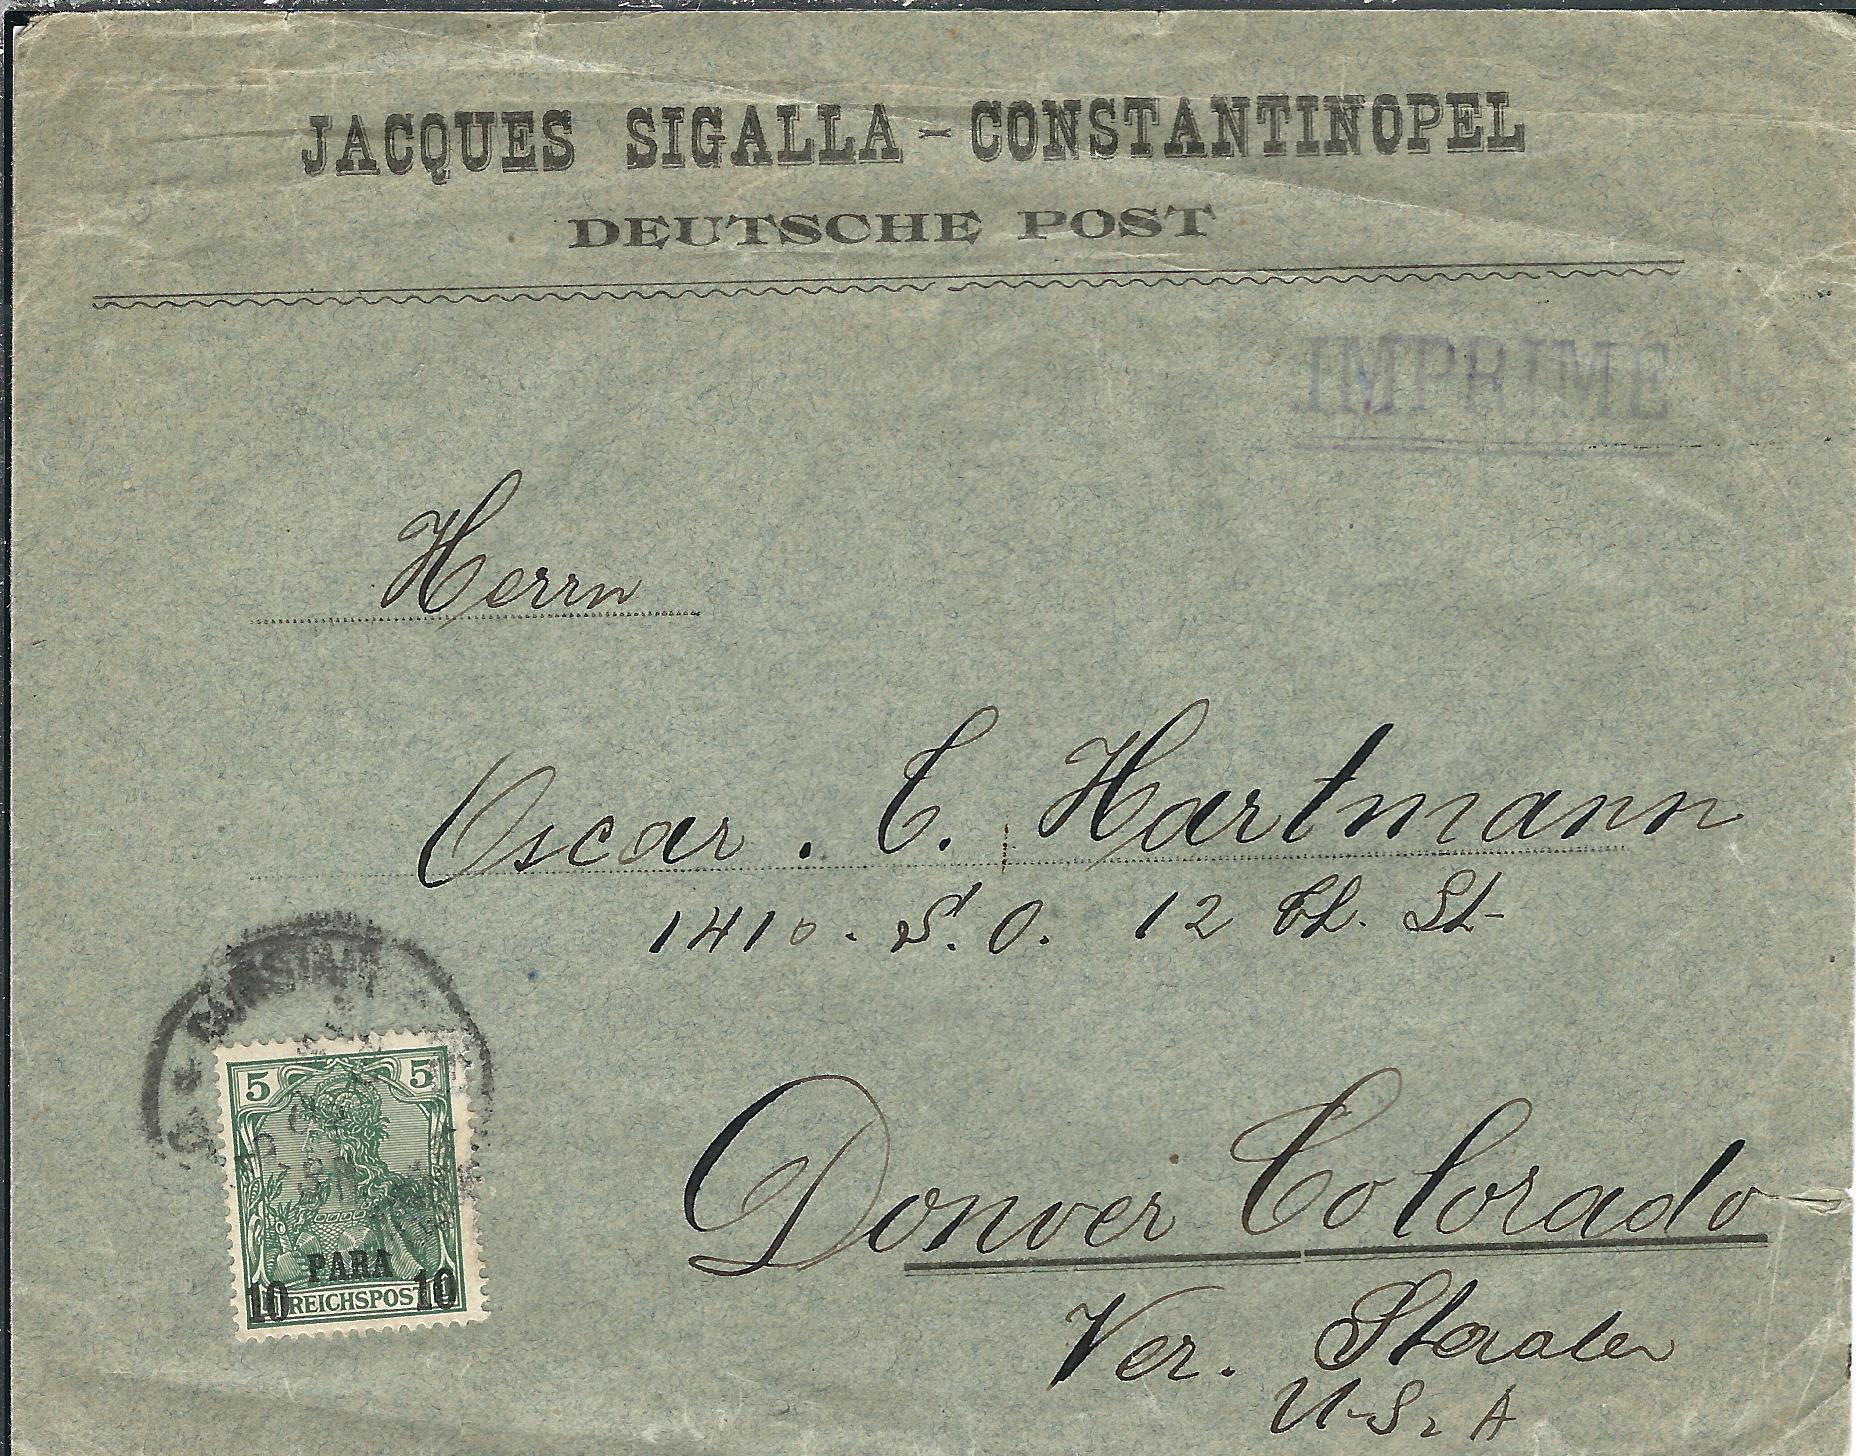 JACQUES SIGALLA - CONSTANTINOPEL
DEUTSCHE POST
IMPRIMÉ
Herrn
Oscar. C. Hartmann
1410. S. O. 12 th. St
Donver Colorado
Ver. Staaten
U. S. A
5 5
PARA
10 10
REICHSPOST